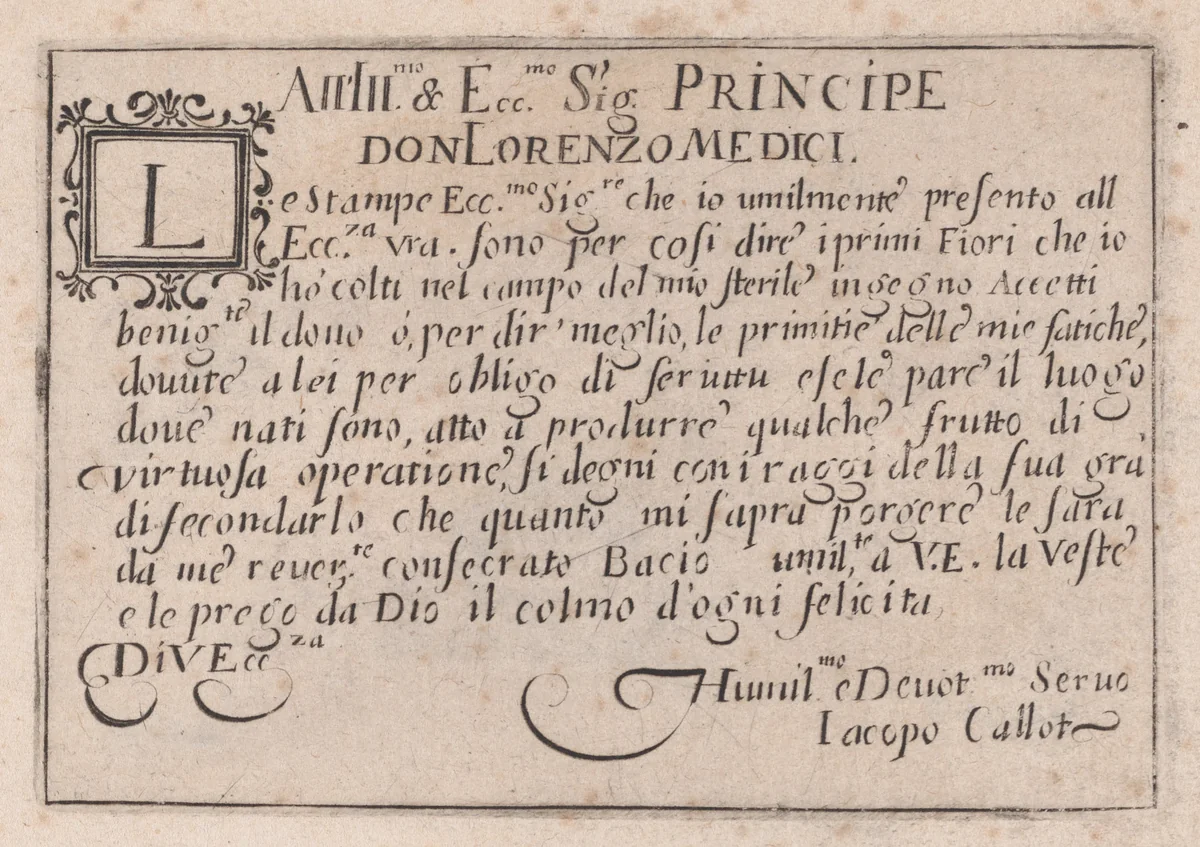 All'Ill.mo & Ecc.mo Sig.r PRINCIPE
DON LORENZO MEDICI.
Le Stampe Ecc.mo Sig.re che io umilmente presento all
Ecc.za vra. sono per cosi dire i primi Fiori che io
hó colti nel campo del mio sterile ingegno Accetti
benig.te il dono ó, per dir' meglio, le primitie delle mie fatiche,
douute a lei per obligo di seruitu e se le pare il luogo
doue nati sono, atto a produrre qualche frutto di
virtuosa operatione, si degni con i raggi della sua gra
di secondarlo che quanto mi sapra porgere le sara
da me reuer.te consecrato Bacio umil.te a V.E. la veste
e le prego da Dio il colmo d'ogni felicita,
Di V Ecc za
Humil.mo e Deuot.mo Seruo
Iacopo Callot